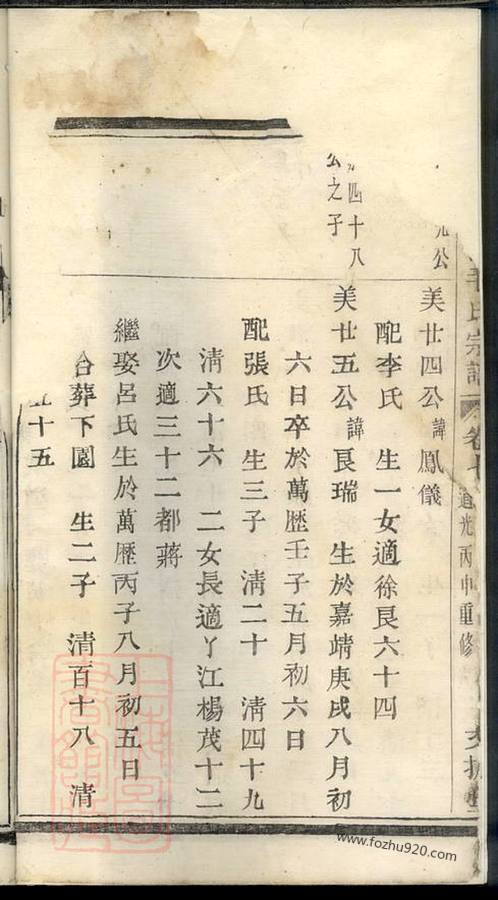 氏宗譜 卷七 道光丙申重修
公
美廿四公諱鳳儀
配李氏 生一女適徐良六十四
四十八
公之子
美廿五公諱良瑞 生於嘉靖庚戌八月初
六日卒於萬歷壬子五月初六日
配張氏 生三子 淸二十 淸四十九
淸六十六 二女長適丫江楊茂十二
次適三十二都蔣
繼娶呂氏生於萬歷丙子八月初五日
合葬下園 生二子 淸百十八 淸
十五
www.fozhu920.com